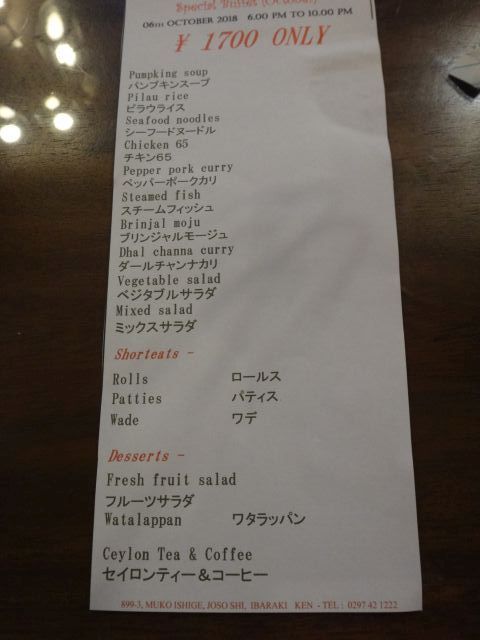 Special Buffet (October)
06TH OCTOBER 2018 6.00 PM TO 10.00 PM
¥ 1700 ONLY
Pumpking soup
パンプキンスープ
Pilau rice
ピラウライス
Seafood noodles
シーフードヌードル
Chicken 65
チキン65
Pepper pork curry
ペッパーポークカリ
Steamed fish
スチームフィッシュ
Brinjal moju
ブリンジャルモージュ
Dhal channa curry
ダールチャンナカリ
Vegetable salad
ベジタブルサラダ
Mixed salad
ミックスサラダ
Shorteats -
Rolls ロールス
Patties パティス
Wade ワデ
Desserts -
Fresh fruit salad
フルーツサラダ
Watalappan ワタラッパン
Ceylon Tea & Coffee
セイロンティー＆コーヒー
899-3, MUKO ISHIGE, JOSO SHI, IBARAKI KEN - TEL : 0297 42 1222